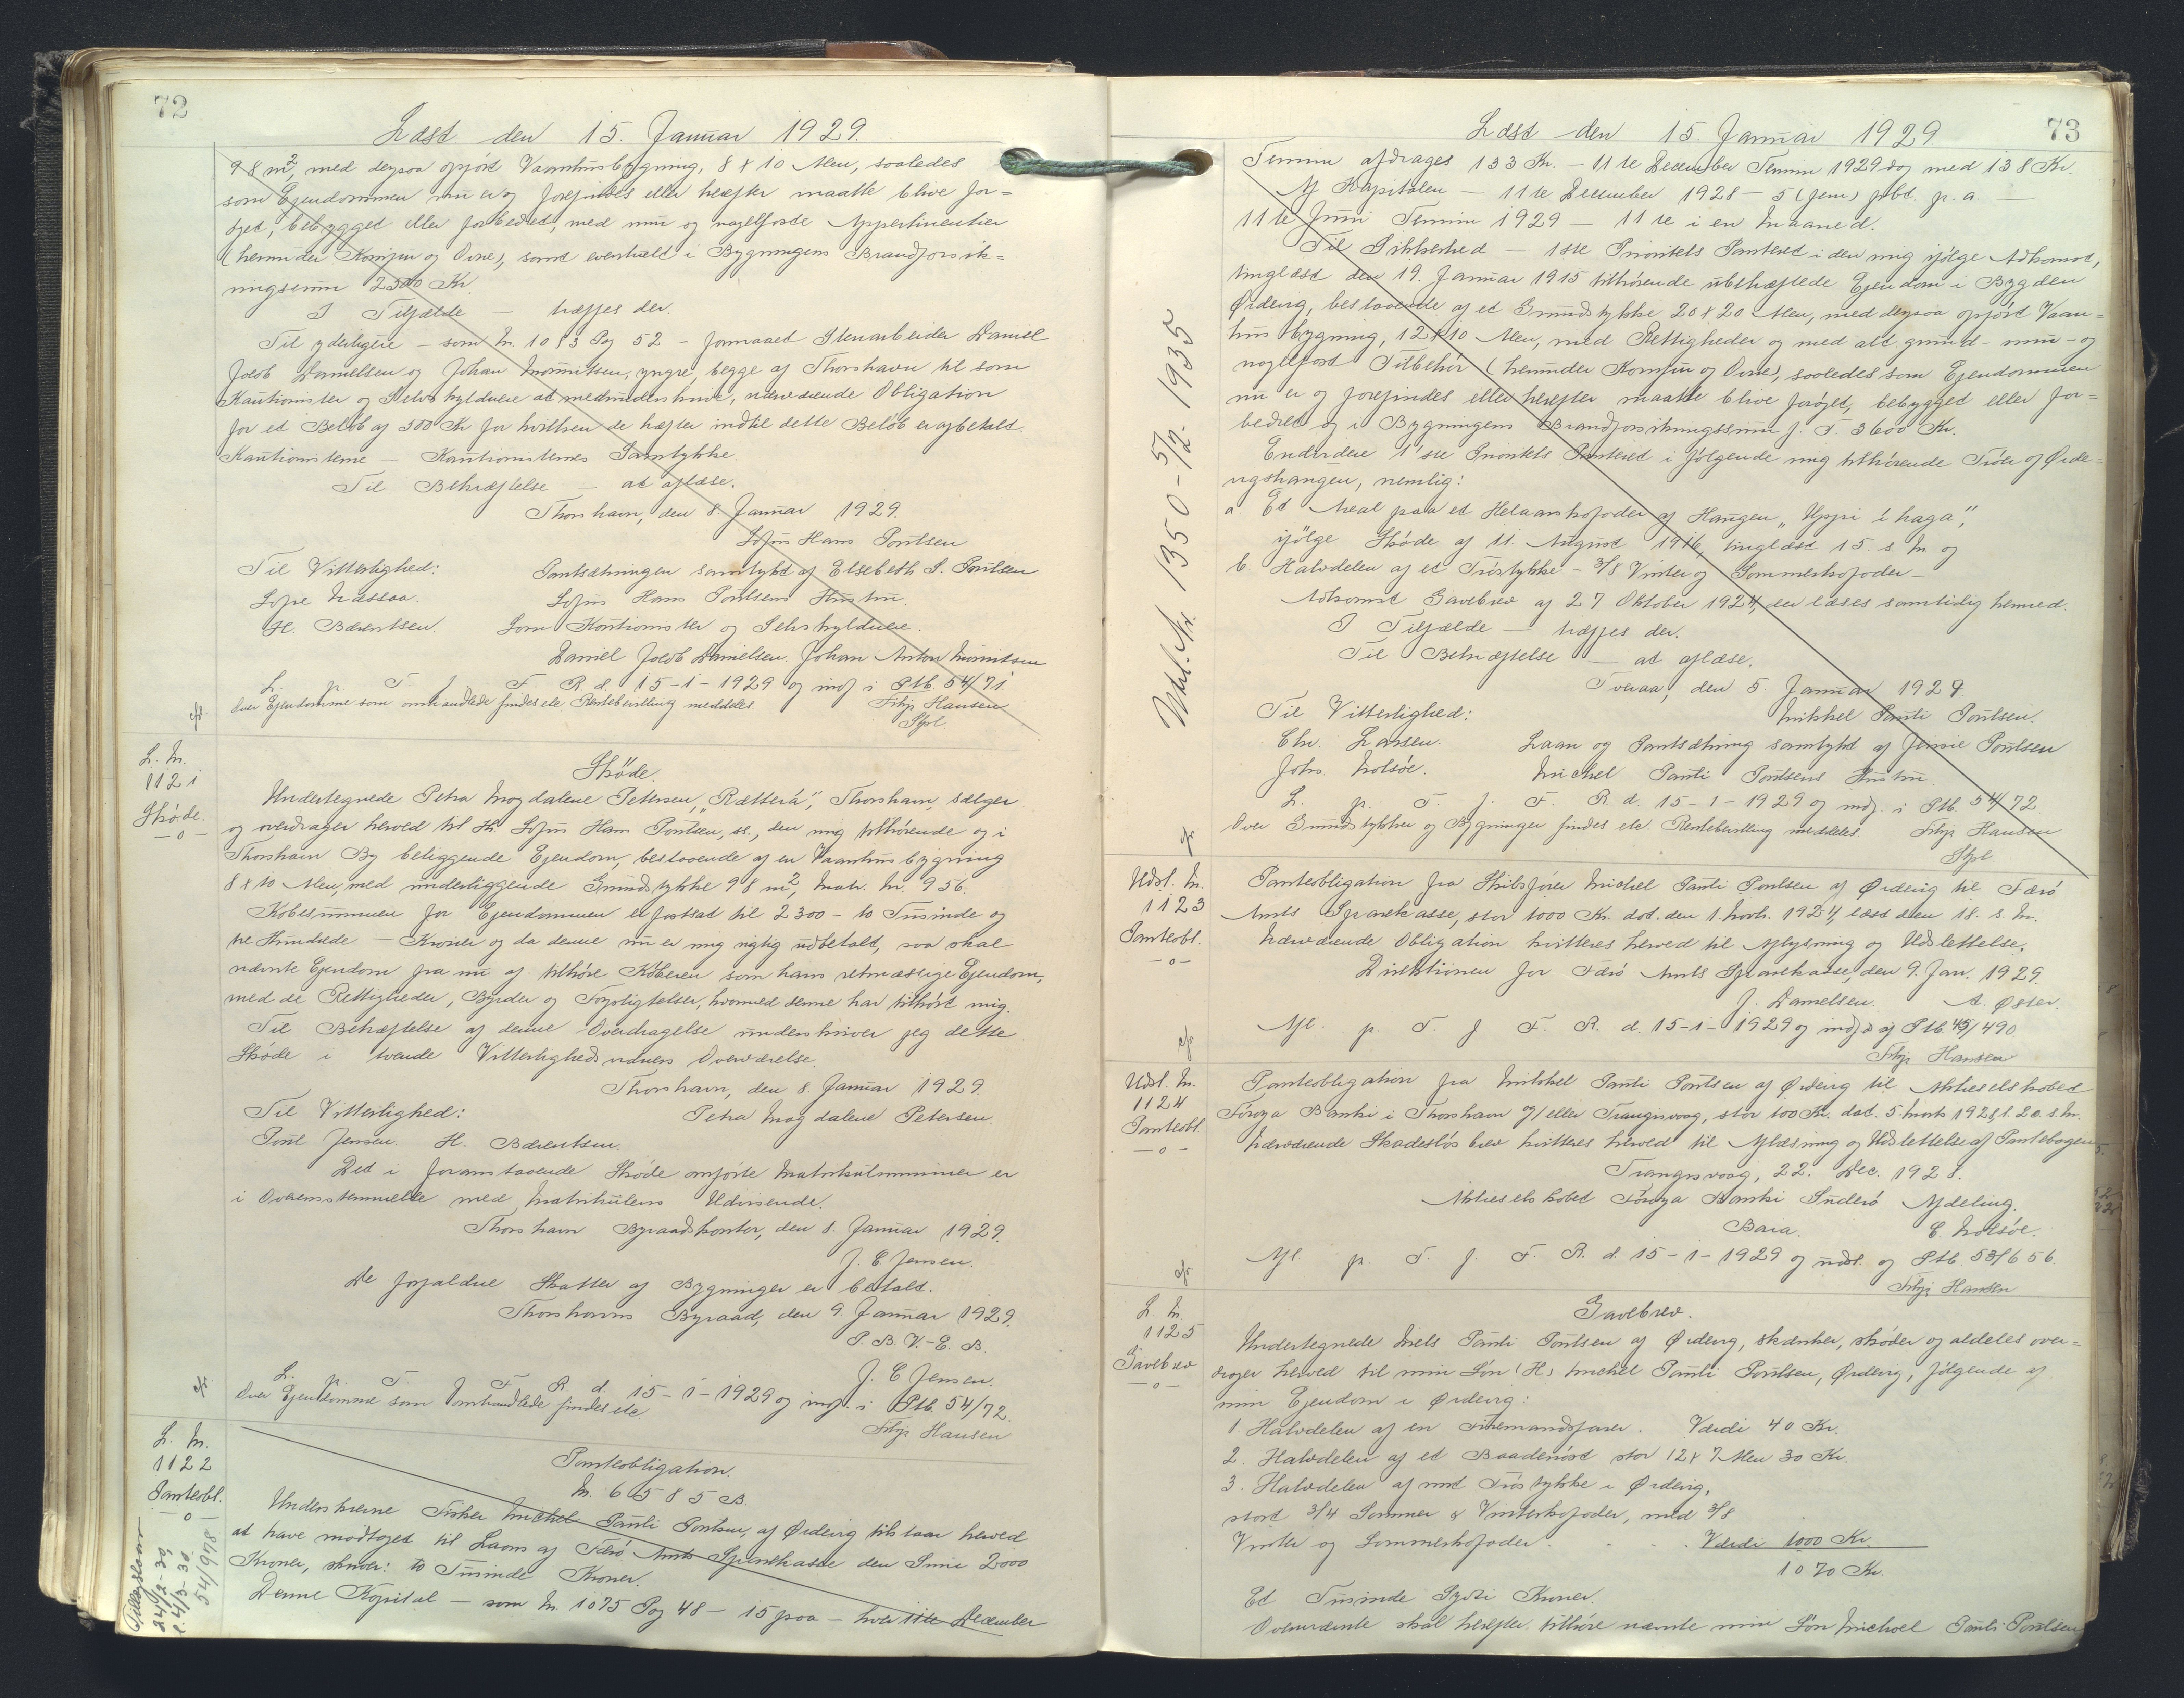 72
Læst den 15. Januar 1929.
98 m², med derpaa opført Vaanhusbygning, 8 x 10 Alen, saaledes
som Ejendommen nu er og forefindes eller herefter maatte blive for=
øget, bebygget eller forbedret, med mur og nagelfaste Appertinentier
(herunder Komfur og Ovne), samt eventuelt i Bygningens Brandforsik=
ringssum 2300 Kr.
I Tilfælde — træffes der.
Til yderligere — som Nr. 1083 Pag 52 — formaaet Stenarbeider Daniel
Jacob Danielsen og Johan Mouritsen, yngre, begge af Thorshavn til som
Kautionister og Selvskyldnere at medunderskrive, nærværende Obligation
for et Beløb af 500 Kr for hvilken de hæfter indtil dette Beløb er afbetalt.
Kautionisterne — Kautionisternes Samtykke.
Til Bekræftelse — at aflæse.
Thorshavn, den 8. Januar 1929.
Sofus Hans Poulsen
Til Vitterlighed: Pantsætningen samtykt af Elsebeth S. Poulsen
Sofie Næssaa. Sofus Hans Poulsens Hustru.
H. Bærentsen. Som Kautionister og Selvskyldnere.
Daniel Jacob Danielsen. Johan Anton Mouritsen
L. p. T. f. F. R. d. 15-1-1929 og indf i Ptb. 54/71
Over Ejendomme som omhandlede findes ete Rentebevilling meddeles Filip Hansen
Stpl
L. Nr.
1121
Skøde.
—o—
Skøde.
Undertegnede Petra Magdalene Petersen, „Rætterá", Thorshavn, sælger
og overdrager herved til Hr. Sofus Hans Poulsen, ss., den mig tilhørende og i
Thorshavn By beliggende Ejendom, bestaaende af en Vaanhusbygning
8 x 10 Alen, med underliggende Grundstykke 98 m², Matr. Nr. 956.
Købesummen for Ejendommen er fastsat til 2300 — to Tusinde og
tre Hundrede — Kroner og da denne nu er mig rigtig udbetalt, saa skal
nævnte Ejendom fra nu af tilhøre Køberen som hans retmæssige Ejendom,
med de Rettigheder, Byrder og Forpligtelser, hvormed denne har tilhørt mig.
Til Bekræftelse af denne Overdragelse underskriver jeg dette
Skøde i tvende Vitterlighedsvidners Overværelse.
Thorshavn, den 8. Januar 1929.
Til Vitterlighed: Petra Magdalene Petersen.
Poul Jensen. H. Bærentsen.
Det i foranstaaende Skøde anførte Matrikulnummer er
i Overensstemmelse med Matrikulens Udvisende.
Thorshavn Byraadskontor, den 8. Januar 1929.
J. C Jensen.
De forfaldne Skatter af Bygninger er betalt.
Thorshavns Byraad, den 9. Januar 1929.
P. B. V. - E. B.
J. C Jensen.
L. p. T. f. F. R. d. 15-1-1929 og indf. i Ptb. 54/72.
Over Ejendomme som omhandlede findes ete
Filip Hansen
L. Nr.
1122
Panteobl.
—o—
54/978
Panteobligation.
Nr. 6585 B.
Underskrevne Fisker Michel Pauli Poulsen, af Ørdevig tilstaar herved
at have modtaget til Laans af Færø Amts Sparekasse den Sum 2000
Kroner, skriver: to Tusinde Kroner.
Denne Kapital — som Nr. 1075 Pag 48 — 15 paa — hver 11te December
73
Læst den 15. Januar 1929.
Termin afdrages 133 Kr. — 11te December Termin 1929 dog med 138 Kr.
Af Kapitalen — 11te December 1928 — 5 (fem) pCt. p. a. —
11te Juni Termin 1929 — 11te i en Maaned.
Til Sikkerhed — 1ste Prioritets Panteret i den mig ifølge Adkomst,
tinglæst den 19. Januar 1915 tilhørende ubehæftede Ejendom i Bygden
Ørdevig, bestaaende af et Grundstykke 20 x 20 Alen, med derpaa opført Vaan=
hus bygning, 12 x 10 Alen, med Rettigheder og med alt grund- mur- og
nagelfast Tilbehør (herunder Komfur og Ovne), saaledes som Ejendommen
nu er og forefindes eller herefter maatte blive forøget, bebygget eller for=
bedret og i Bygningens Brandforsikringssum f. T. 3600 Kr.
Endvidere 1ste Prioritets Panteret i følgende mig tilhørende Trøer af Ørde=
vigshaugen, nemlig:
a Et Areal paa et Helaarskofoder af Haugen „Uppi í haga",
ifølge Skøde af 11. August 1916, tinglæst 15. s. M. og
b. Halvdelen af et Trøstykke — 3/8 Vinter og Sommerkofoder —
Adkomst Gavebrev af 27. Oktober 1924, der læses samtidig hermed.
I Tilfælde — træffes der.
Til Bekræftelse — at aflæse.
Tveraa, den 5. Januar 1929.
Til Vitterlighed: Mikkel Pauli Poulsen.
Chr. Larsen. Laan og Pantsætning samtykt af Jensie Poulsen
Johs. Nolsøe. Michel Pauli Poulsens Hustru
L. p. T. f. F. R. d. 15-1-1929 og indf. i Ptb. 54/72
Over Grundstykker og Bygninger findes ete. Rentebevilling meddeles Filip Hansen
Stpl
Udsl. Nr. 1350 - 5/2 - 1935
Udsl. Nr.
1123
Panteobl.
—o—
Panteobligation fra Skibsfører Michel Pauli Poulsen af Ørdevig til Færø
Amts Sparekasse, stor 1000 Kr. dat. den 1. Novb. 1924, læst den 18. s. M.
Nærværende Obligation kvitteres herved til Aflysning og Udslettelse.
Direktionen for Færø Amts Sparekasse, den 9. Jan. 1929.
J. Danielsen. A. Øster.
Afl. p. T. f. F. R. d. 15-1-1929 og indf af Ptb. 45/490.
Filip Hansen
Udsl. Nr.
1124
Panteobl.
—o—
Panteobligation fra Mikkel Pauli Poulsen af Ørdevig til Aktieselskabet
Føroya Banki i Thorshavn og/eller Trangisvaag, stor 100 Kr. dat. 5. Marts 1928, l. 20. s. M.
Nærværende Skadesløs brev kvitteres herved til Aflæsning og Udslettelse af Pantebogen.
Trangisvaag, 22. Dec. 1928.
Aktieselskabet Føroya Banki Suderø Afdeling.
C Nolsøe.
Afl p. T. f. F. R. d. 15-1-1929 og udsl. og Ptb. 53/656.
Filip Hansen
L. Nr.
1125
Gavebrev
—o—
Gavebrev.
Undertegnede Niels Pauli Poulsen af Ørdevig, skænker, skøder og aldeles over=
drager herved til min Søn (Hr) Michel Pauli Poulsen, Ørdevig, følgende af
min Ejendom i Ørdevig:
1 Halvdelen af en Firemandsfarer. Værdi 40 Kr.
2 Halvdelen af et Baadenøst stor 12 x 7 Alen 30 Kr.
3. Halvdelen af mit Trøstykke i Ørdevig,
stort 3/4 Sommer & Vinterkofoder, med 3/8
Vinter og Sommerkofoder. Værdi 1000 Kr.
1070 Kr.
Et Tusinde Sytti Kroner.
Ovennævnte skal herefter tilhøre nævnte min Søn Michael Pauli Poulsen